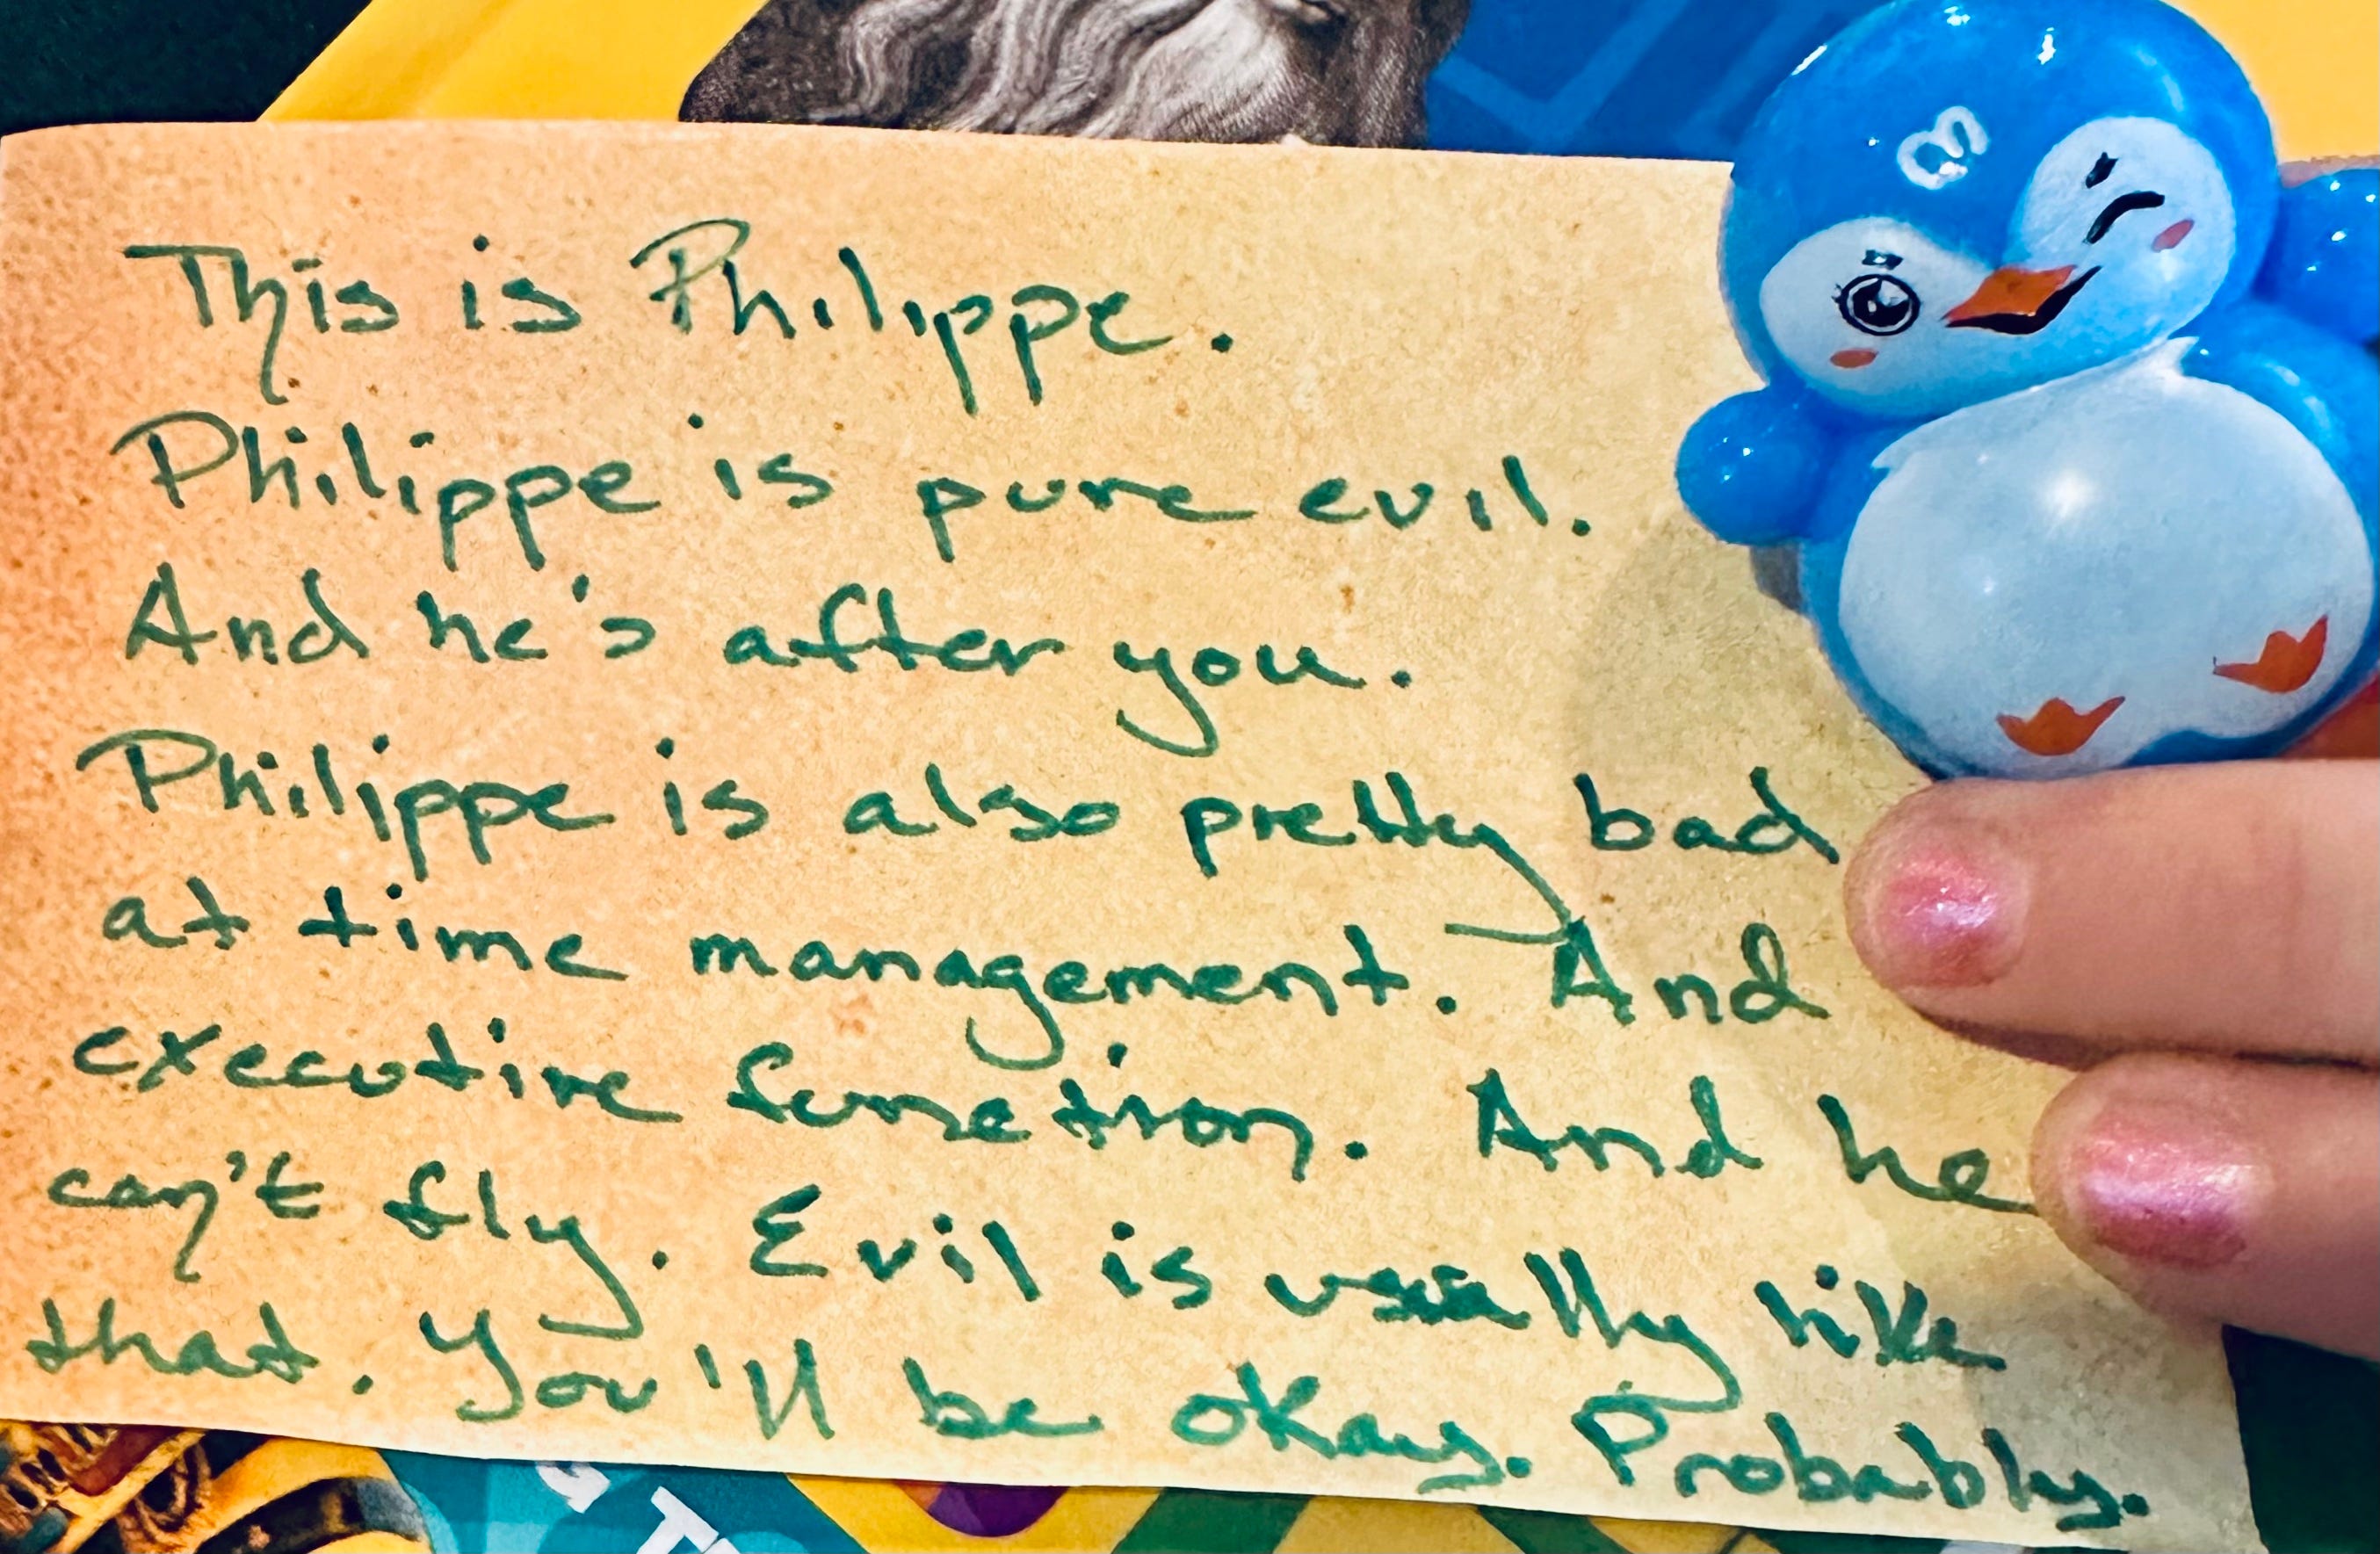 This is Philippe.
Philippe is pure evil.
And he's after you.
Philippe is also pretty bad
at time management. And
executive function. And he
can't fly. Evil is usually like
that. You'll be okay. Probably.